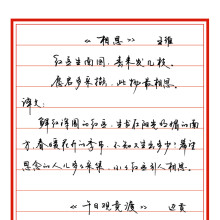 《相思》 王维
红豆生南国，春来发几枝。
愿君多采撷，此物最相思。
译文：
鲜红浑圆的红豆，生长在阳光明媚的南
方，春暖花开的季节，不知又生出多少！希望
思念的人儿多多采集，小小红豆引人相思。